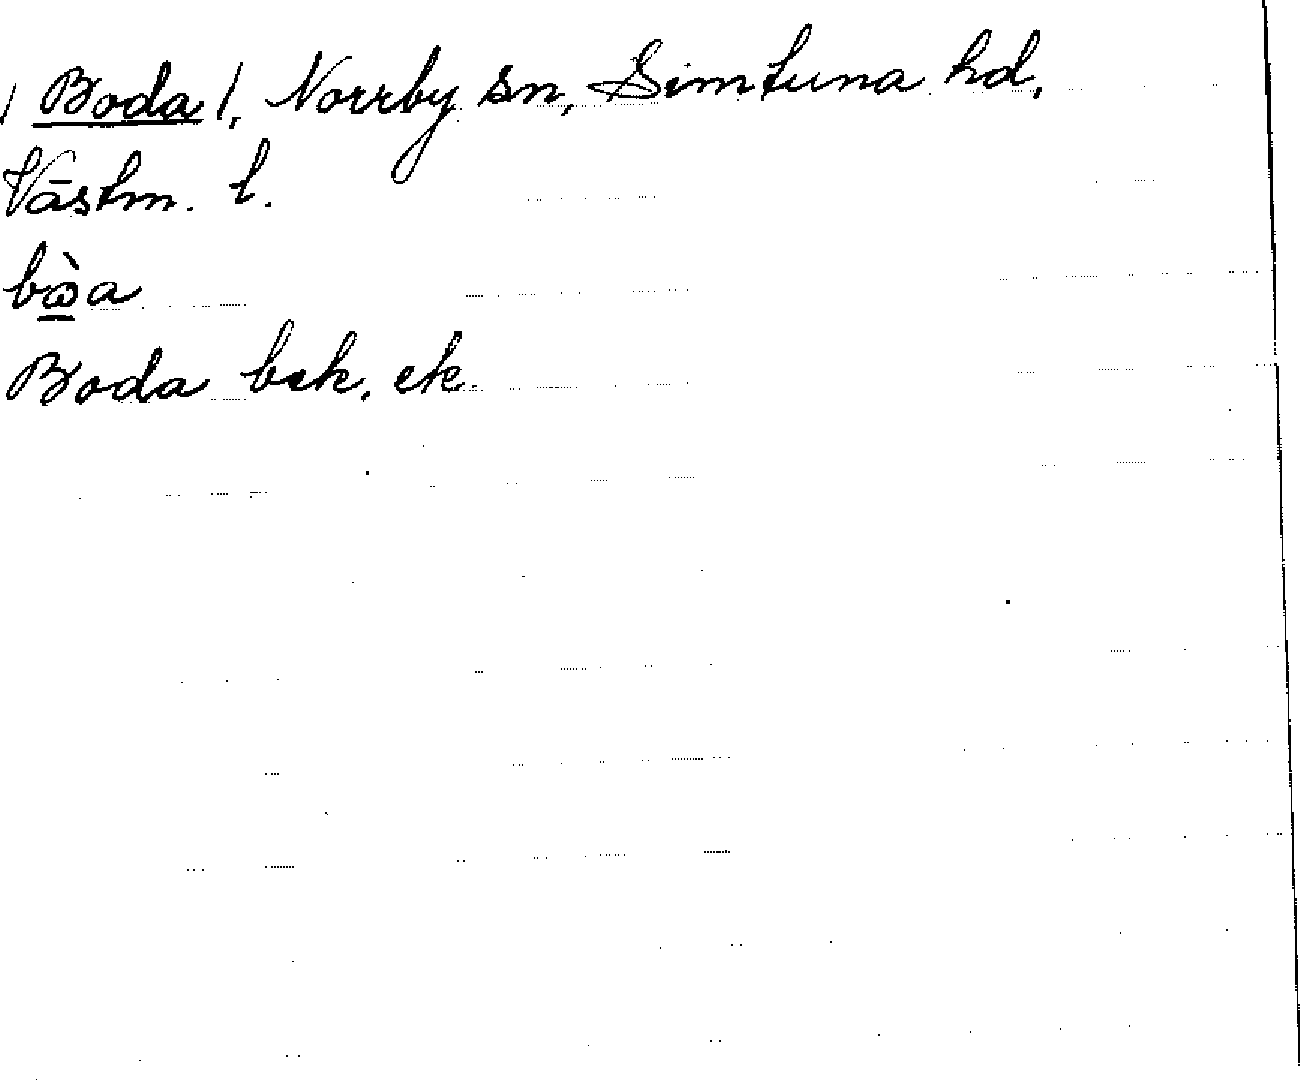 / Boda /, Norrby sn, Simtuna hd,
Västm. l.
bὼ̲a
Boda bek, ek.